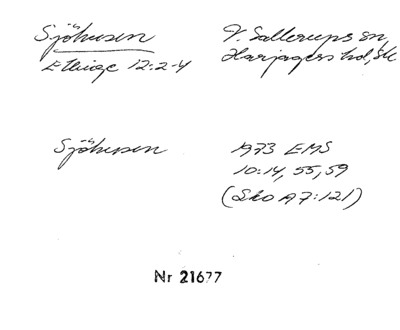 Sjöhusen
V. Sallerups sn,
Ellinge 12:2-4
Harjagers hd, Sk
Sjöhusen
1973 EMS
10:14, 55, 59
(Sko A7:121)
Nr 21677